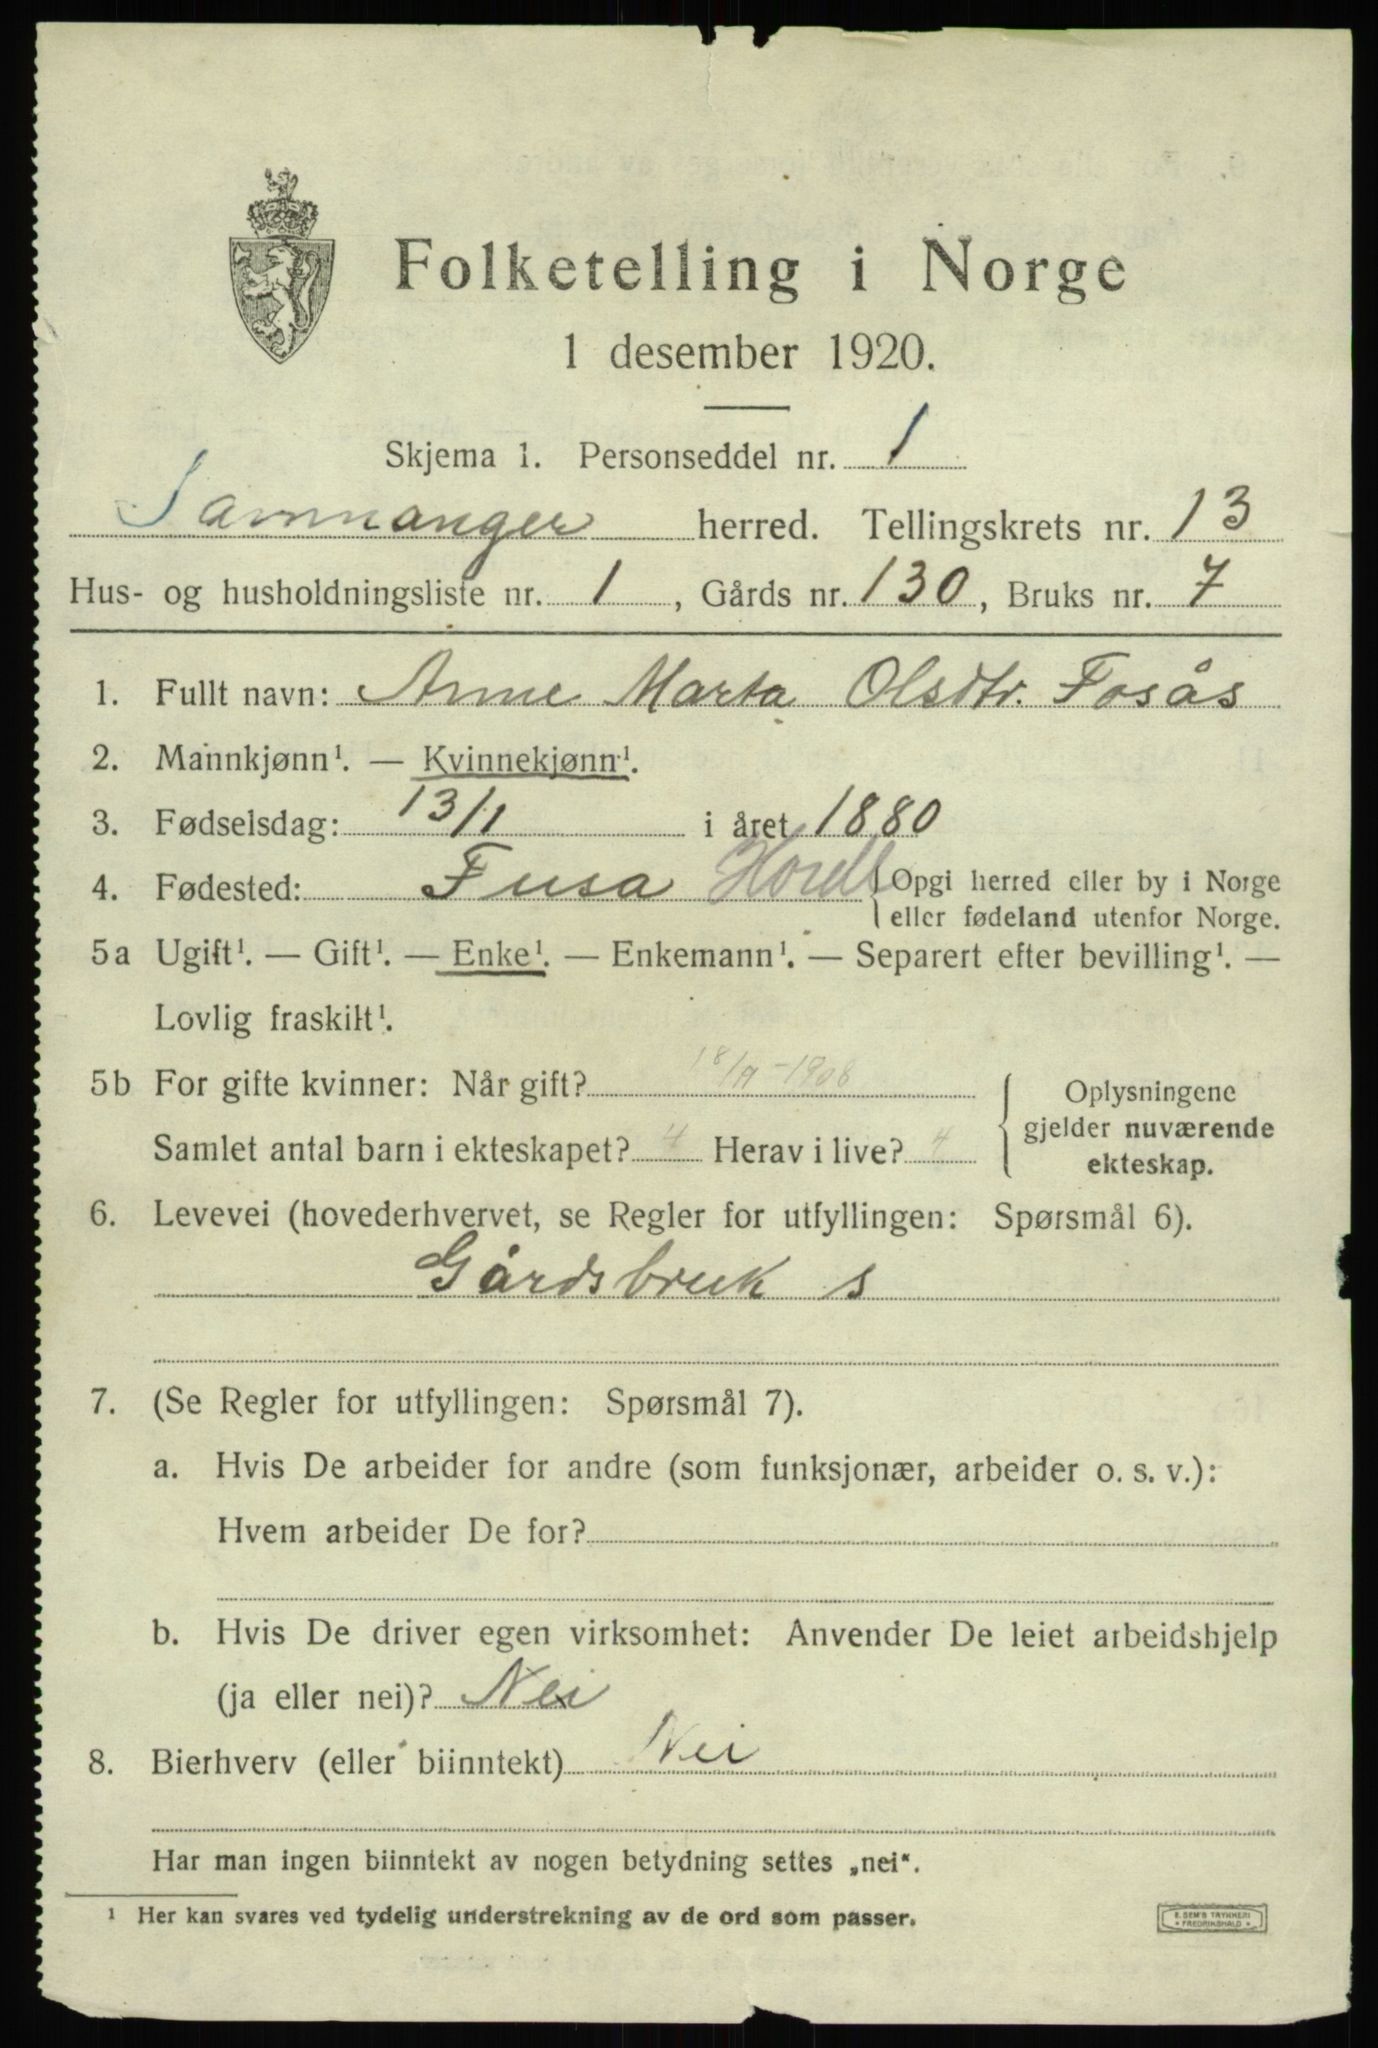 Folketelling i Norge
1 desember 1920.
Skjema 1. Personseddel nr. 1
Samnanger herred. Tellingskrets nr. 13
Hus- og husholdningsliste nr. 1, Gårds nr. 130, Bruks nr. 7
1. Fullt navn: Anne Marta Olsdtr. Fosås
2. Mannkjønn¹. — Kvinnekjønn¹.
3. Fødselsdag: 13/1 i året 1880
4. Fødested: Fusa Hordl {Opgi herred eller by i Norge
eller fødeland utenfor Norge.
5a Ugift¹. — Gift¹. — Enke¹. — Enkemann¹. — Separert efter bevilling¹. —
Lovlig fraskilt¹.
5b For gifte kvinner: Når gift? 18/ -1908
Samlet antal barn i ekteskapet? 4 Herav i live? 4
Oplysningene
gjelder nuværende
ekteskap.
6. Levevei (hovederhvervet, se Regler for utfyllingen: Spørsmål 6).
Gårdsbruk s
7. (Se Regler for utfyllingen: Spørsmål 7).
a. Hvis De arbeider for andre (som funksjonær, arbeider o. s. v.):
Hvem arbeider De for?
b. Hvis De driver egen virksomhet: Anvender De leiet arbeidshjelp
(ja eller nei)? Nei
8. Bierhverv (eller biinntekt) Nei
Har man ingen biinntekt av nogen betydning settes „nei“.
¹ Her kan svares ved tydelig understrekning av de ord som passer.
E. SEM'S TRYKKERI
FREDRIKSHALD